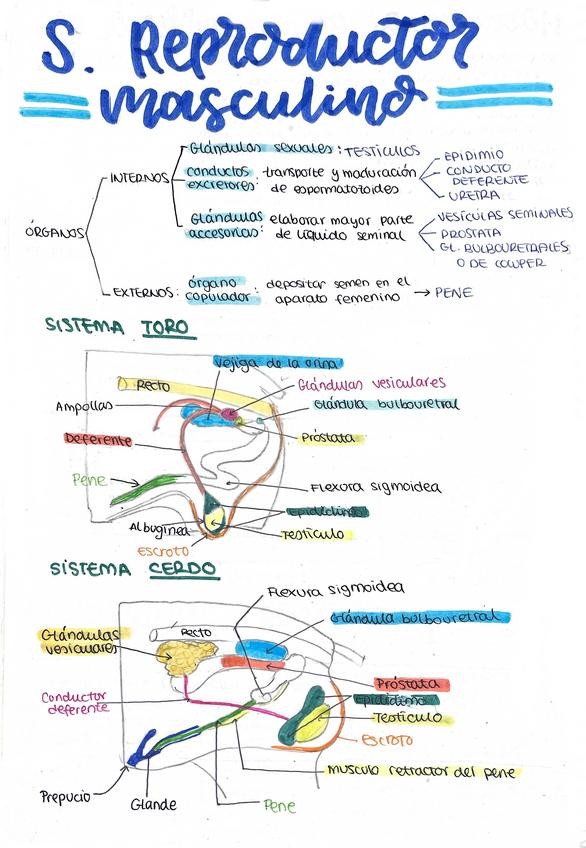 S. Reproductor
masculino
ÓRGANOS
INTERNOS
Glándulas sexuales : TESTÍCULOS
conductos excretores: transporte y maduración de espermatozoides
EPIDIMIO
CONDUCTO DEFERENTE
URETRA
Glándulas accesorias: elaborar mayor parte de líquido seminal
VESÍCULAS SEMINALES
PRÓSTATA
GL. BULBOURETRALES
O DE COWPER
EXTERNOS: órgano copulador: depositar semen en el aparato femenino → PENE
SISTEMA TORO
Vejiga de la orina
Recto
Glándulas vesiculares
Ampollas
Glándula bulbouretral
Deferente
Próstata
Pene
Flexura sigmoidea
Epidídimo
Albuginea
Testículo
Escroto
SISTEMA CERDO
Flexura sigmoidea
Glándula bulbouretral
Glándulas vesiculares
Recto
Próstata
Conductor deferente
Epidídimo
Testículo
Escroto
Musculo retractor del pene
Prepucio
Glande
Pene